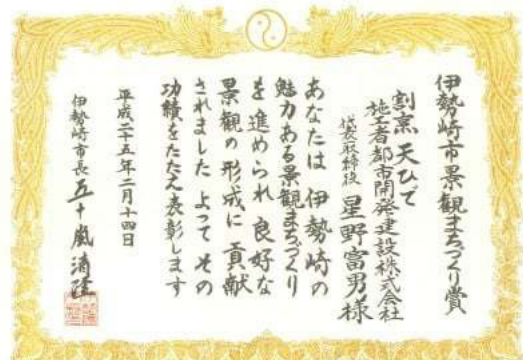 伊勢崎市景観まちづくり賞
割烹 天ひで
施工者都市開発建設株式会社
代表取締役 星野富男様
あなたは 伊勢崎の
魅力ある景観まちづくり
を進められ 良好な
景観の形成に 貢献
されました よってその
功績をたたえ表彰します
平成二十五年二月十四日
伊勢崎市長 五十嵐清隆